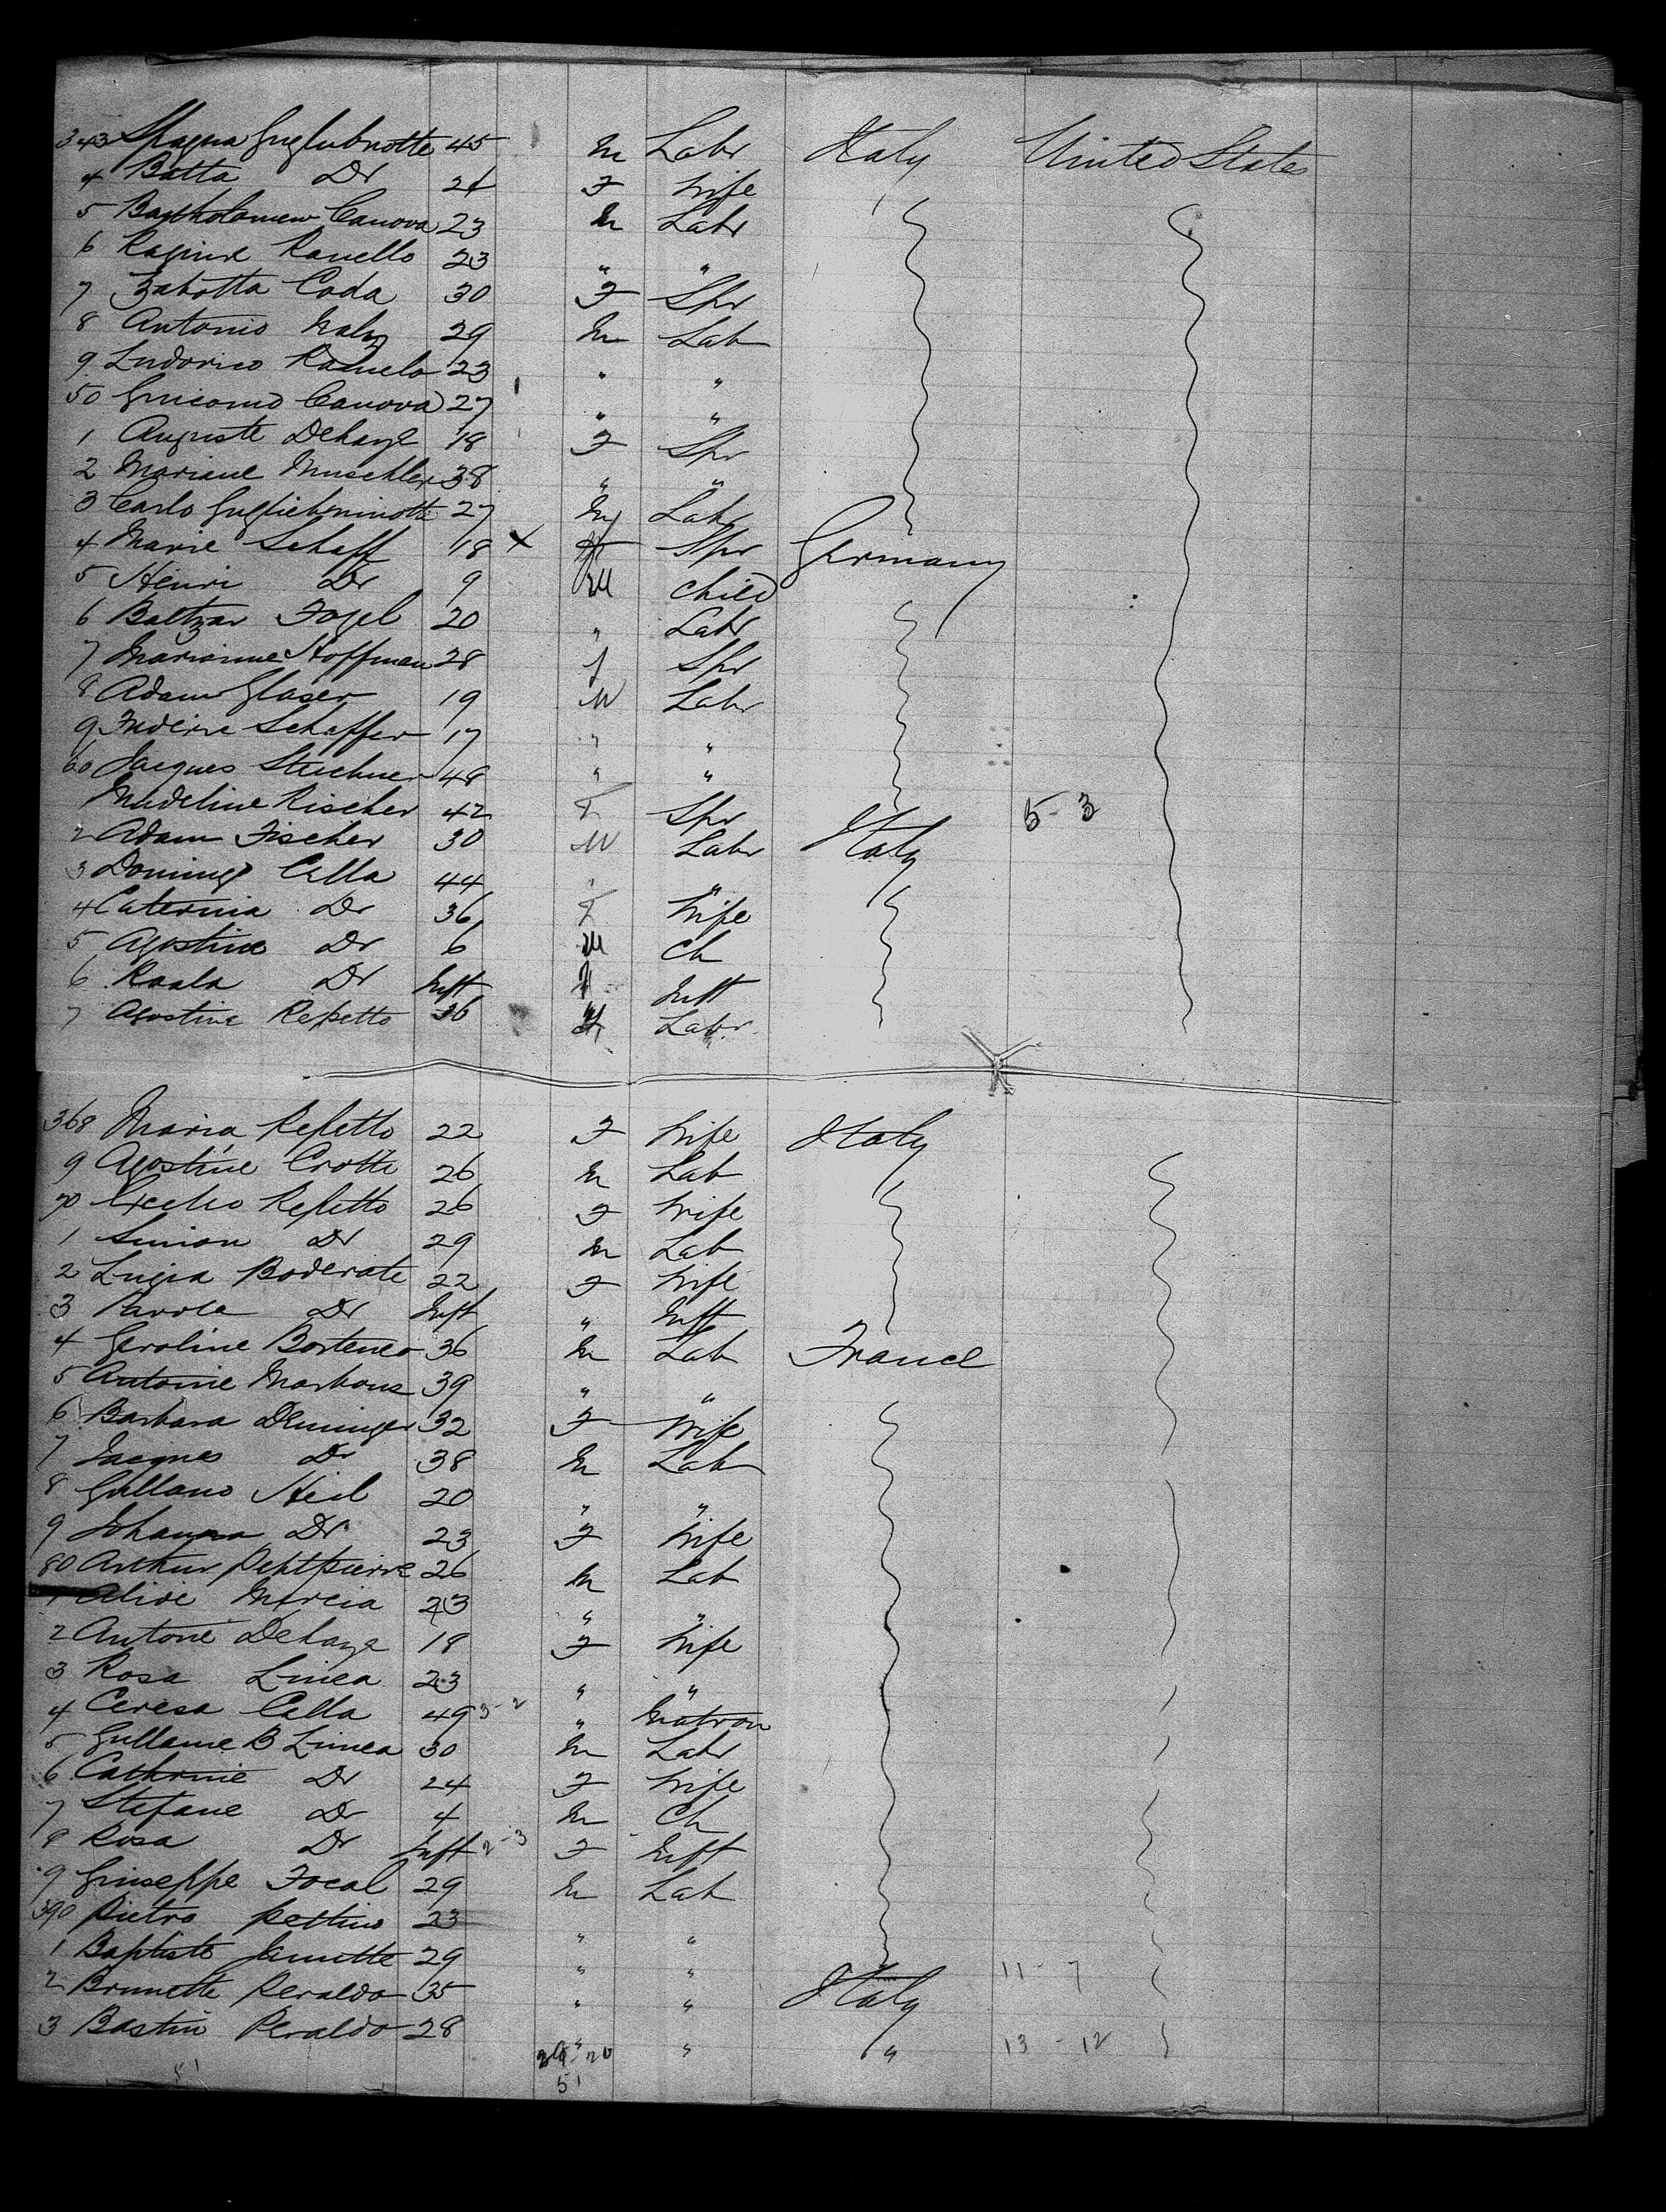 343 Spagna Guglubnotte 45 M Labr Italy United States
4 Batta Do 21 F Wife
5 Bartholamew Canova 23 M Labr
6 Ranello 23 " "
7 Zabotta Coda 30 F Spr
8 Antonio 29 M Lab
9 Ludovico Ramelo 23 " "
50 Guicomo Canova 27 " "
1 Auguste Dehaye 18 F Spr
2 Mariane Muschler 38 " "
3 Carlo 27 M Labr
4 Marie Schaff 18 X F Spr Germany
5 Henri Do 9 M Child
6 Baltzar Fogel 20 " Labr
7 Marianne Hoffman 28 f Spr
8 Adam Glaser 19 M Labr
9 Schaffer 17 " "
60 Jacques Steichner 48 " "
Madeline Rischer 42 F Spr 5-3
2 Adam Fischer 30 M Labr Italy
3 Domingo Calla 44 " "
4 Caternia Do 36 F Wife
5 Agostine Do 6 M Ch
6 Raala Do Inft F Inft
7 Agostine Repetto 36 Labr
368 Maria Repetto 22 F Wife Italy
9 Agostine Crotte 26 M Lab
70 Repetto 26 F Wife
1 Simion Do 29 M Lab
2 Lugia Boderate 22 F Wife
3 Do Inft " Inft
4 Geroline Borteneo 36 M Lab France
5 Antoine 39 " "
6 Barbara Deminger 32 F Wife
7 Jacques Do 38 M Lab
8 Gullano Heil 20 " "
9 Johanna Do 23 F Wife
80 Arthur Petitpierre 26 M Lab
1 Alise Mercia 23 " "
2 Antone Dehaye 18 F Wife
3 Rosa Linea 23 " "
4 Ceresa Calla 49 3-2 " Matron
5 Gullame B Linea 30 M Labr
6 Cathrine Do 24 F Wife
7 Stefane Do 4 M Ch
8 Rosa Do Inft 2-3 F Inft
9 Giuseppe Focal 29 M Lab
390 Pietro Pettino 23 " "
1 Baptiste Janette 29 " " 11-7
2 Brunette Peraldo 35 " " Italy
3 Bastin Peraldo 28 " " " 13-12
20
51